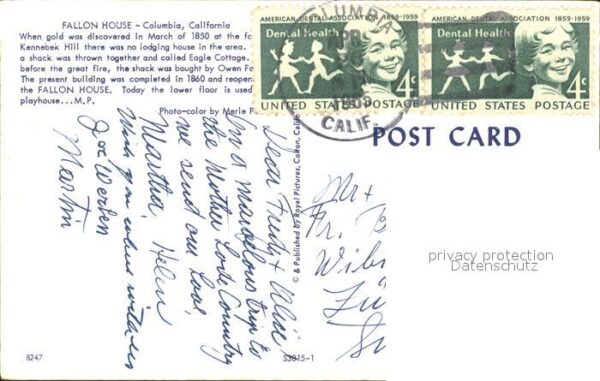 FALLON HOUSE - Columbia, California
When gold was discovered in March of 1850 at the fo
Kennebek Hill there was no lodging house in the area.
a shack was thrown together and called Eagle Cottage.
before the great fire, the shack was bought by Owen Fa
The present building was completed in 1860 and reopen
the FALLON HOUSE. Today the lower floor is used
playhouse...M.P.
Photo-color by Merle P
AMERICAN DENTAL ASSOCIATION 1859-1959
Dental Health
4c
UNITED STATES POSTAGE
AMERICAN DENTAL ASSOCIATION 1859-1959
Dental Health
4c
UNITED STATES POSTAGE
COLUMBIA
CALIF.
POST CARD
© & Published by Royal Pictures, Colton, Calif.
Dear Trudy + Alice
On a marvelous trip to
the Mother Lode Country
we send our love,
Martha, Helen
Wish you were with us
Joe Werben
Martin
Mr +
Fr.
privacy protection
Datenschutz
8247
S3815-1